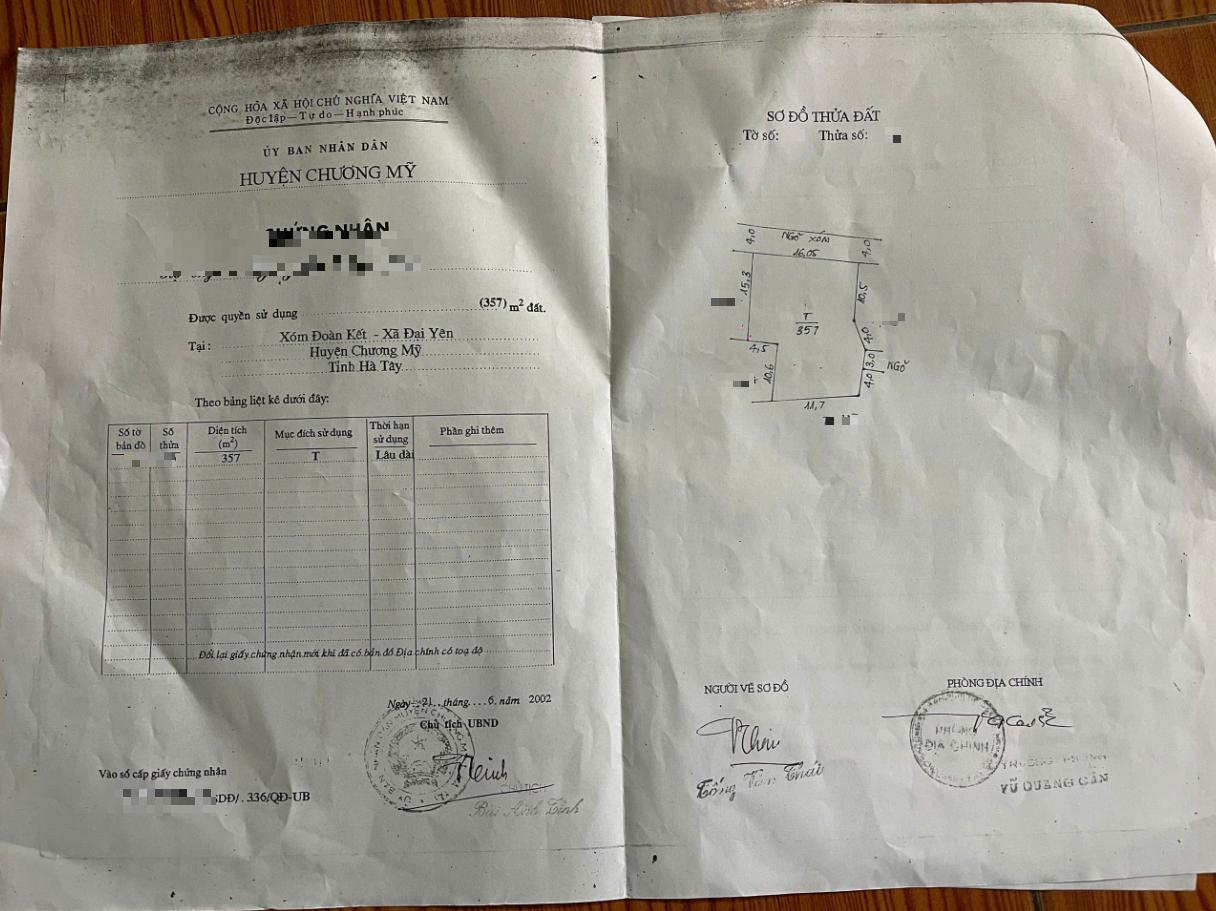 CỘNG HÒA XÃ HỘI CHỦ NGHĨA VIỆT NAM
Độc lập — Tự do — Hạnh phúc
ỦY BAN NHÂN DÂN
HUYỆN CHƯƠNG MỸ
CHỨNG NHẬN
Được quyền sử dụng (357) m² đất.
Tại: Xóm Đoàn Kết - Xã Đại Yên
Huyện Chương Mỹ
Tỉnh Hà Tây
Theo bảng liệt kê dưới đây:
Số tờ bản đồ Số thửa Diện tích (m²) Mục đích sử dụng Thời hạn sử dụng Phần ghi thêm
357 T Lâu dài
Đổi lại giấy chứng nhận mới khi đã có bản đồ Địa chính có toạ độ
Ngày 21 tháng 6 năm 2002
Chủ tịch UBND
CHỦ TỊCH
Bùi Anh Tĩnh
Vào sổ cấp giấy chứng nhận
SDĐ/. 336/QĐ-UB
SƠ ĐỒ THỬA ĐẤT
Tờ số: Thửa số:
4,0 NGÕ XÓM 4,0
16,05
15,3
10,5
T
357
4,0
4,5
3,0 NGÕ
10,6
4,0
11,7
NGƯỜI VẼ SƠ ĐỒ
Tống Văn Thái
PHÒNG ĐỊA CHÍNH
PHÒNG
ĐỊA CHÍNH
TRƯỞNG PHÒNG
VŨ QUANG CẦN